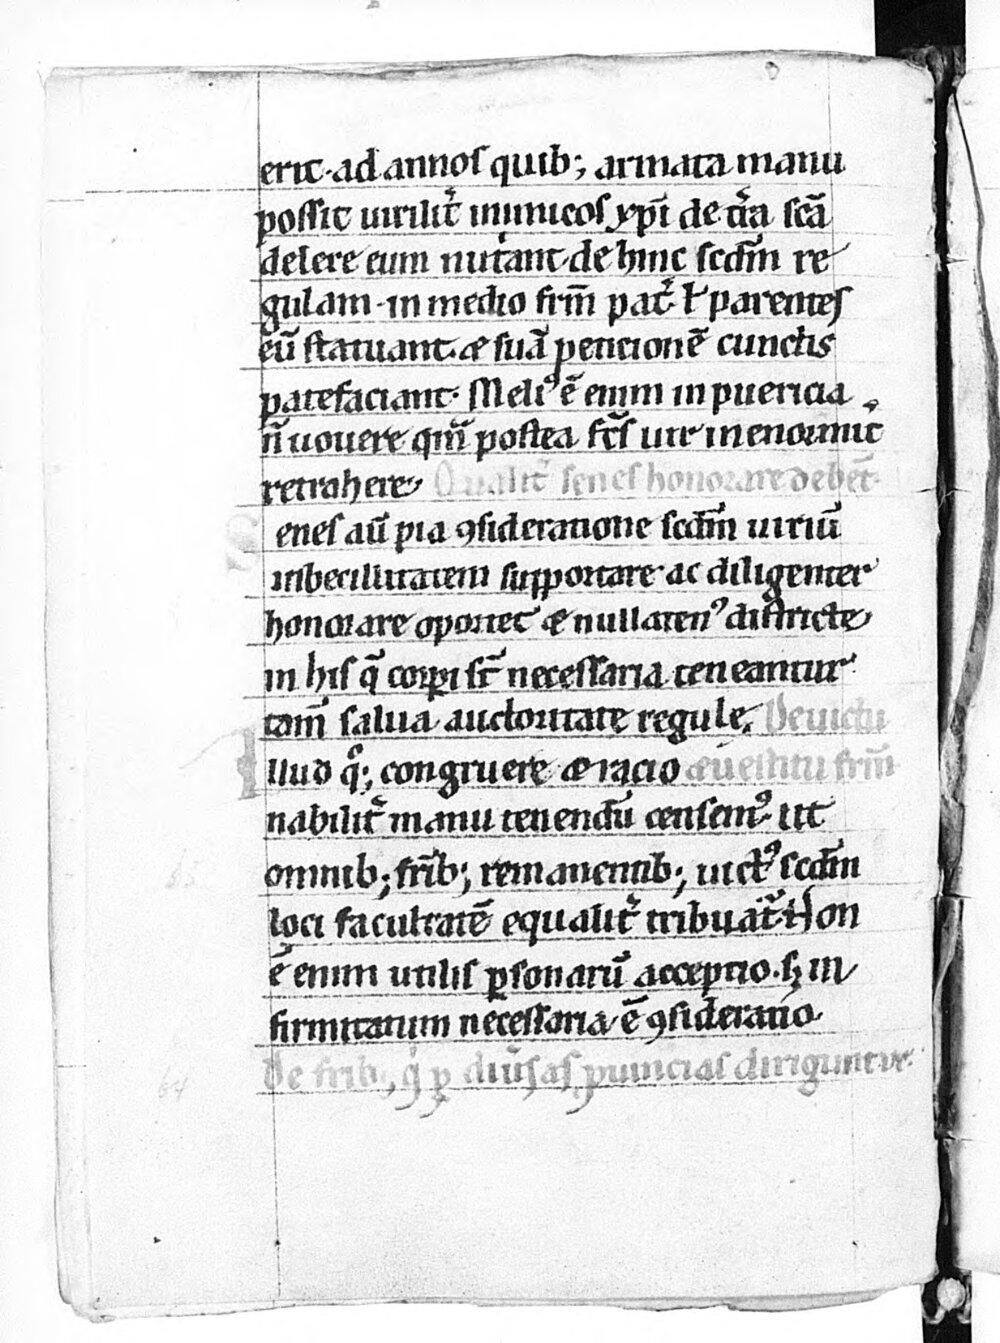 erit· ad annos quib; armata manu
possit uirilit͛ inimicos xp̄i de t͛ra scā
delere eum nut͛ant· de hinc scdm̄ re
gulam· in medio frm̄ pat͛ ł parentes
eū statuant· & suā peticionē cunctis
patefaciant· Meliꝰ ē enim in puericia
n̄ uouere qm̄ postea fc̄s uir in enormit͛
retrahere· Qualit͛ senes honorare debēt·
Senes aū pia ꝯsideratione scdm̄ uiriū
inbecillitatem supportare ac diligenter
honorare oportet & nullatenꝰ districte
in his q̄ corꝑi st̄ necessaria teneantur
tam̄ salua auctoritate regule. De uictu
Illud qͦ; congruere & racio & uestitu frm̄
nabilit͛ manu tenendū censemꝰ· ut
omnib; frib; remanentib; uictꝰ scdm̄
loci facultatē equalit͛ tribuat͛· Non
ē enim utilis ꝑsonarū acceptio· s; in
firmitatum necessaria ē ꝯsideratio·
De frib; q͛ ꝑ diūsas ꝓuincias diriguntur·
64